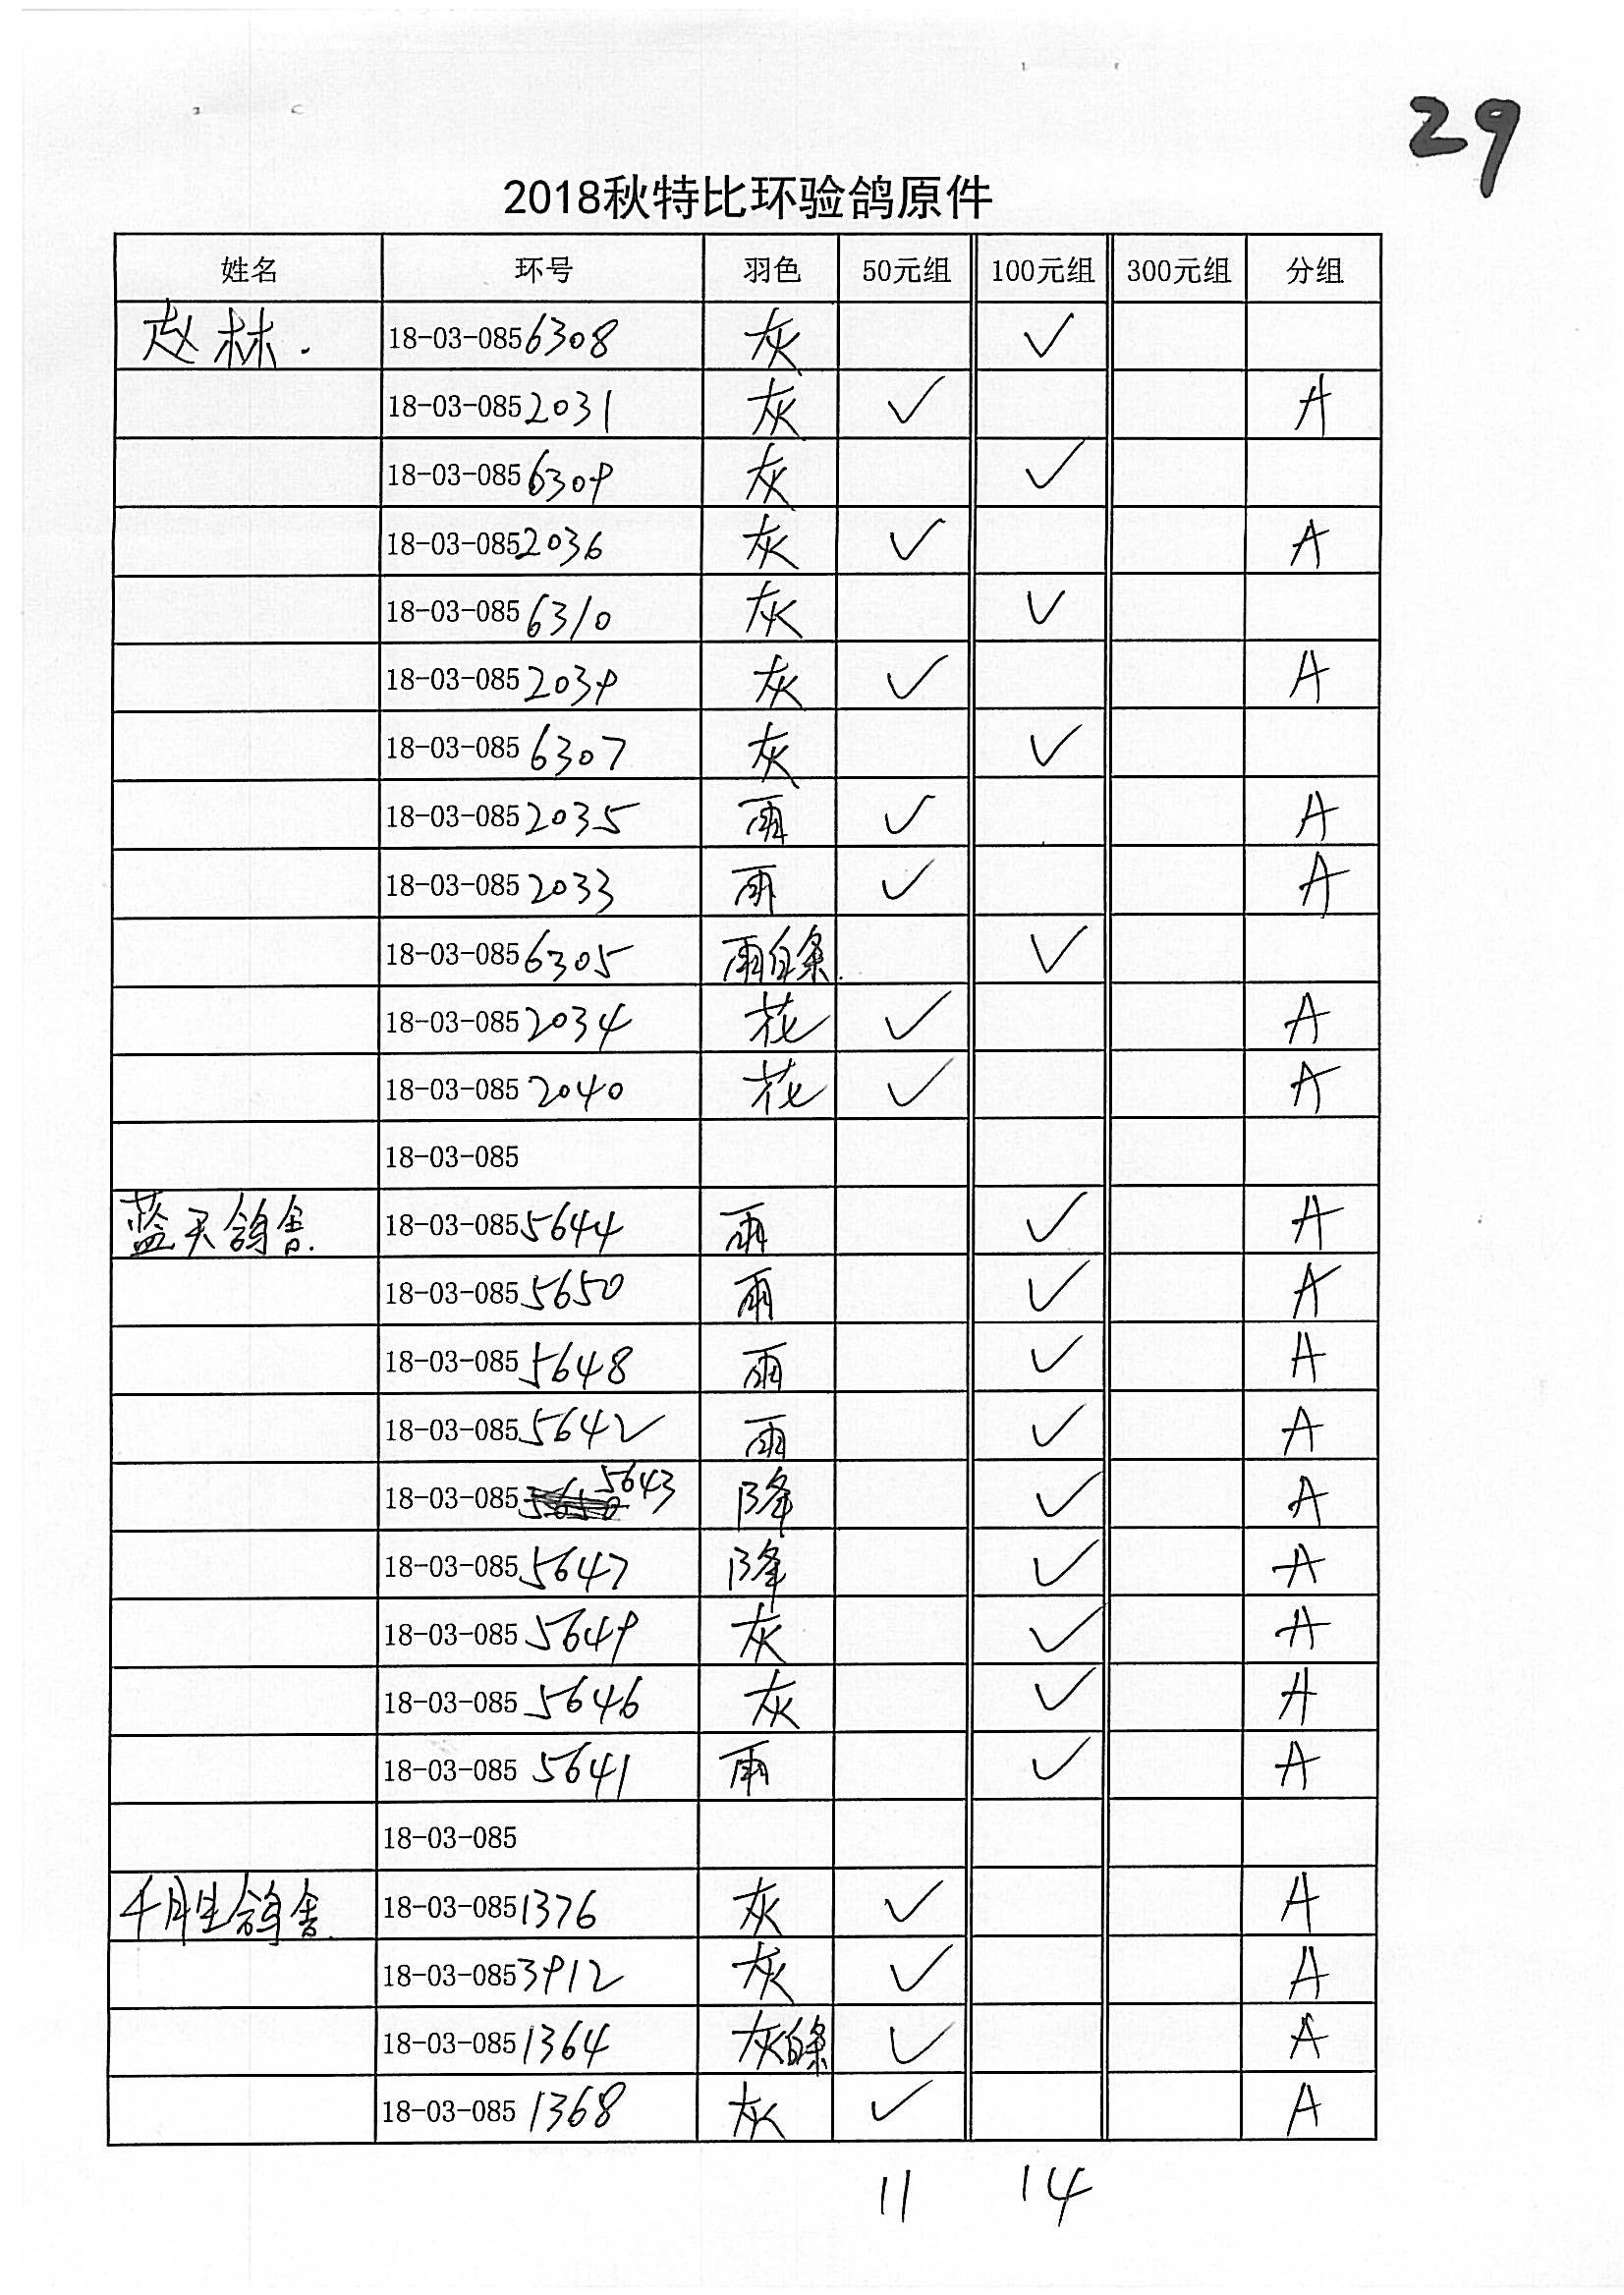 29
2018秋特比环验鸽原件
姓名 环号 羽色 50元组 100元组 300元组 分组
赵林. 18-03-0856308 灰 ✓
18-03-0852031 灰 ✓ A
18-03-0856309 灰 ✓
18-03-0852036 灰 ✓ A
18-03-0856310 灰 ✓
18-03-0852039 灰 ✓ A
18-03-0856307 灰 ✓
18-03-0852035 雨 ✓ A
18-03-0852033 雨 ✓ A
18-03-0856305 雨白条. ✓
18-03-0852034 花 ✓ A
18-03-0852040 花 ✓ A
18-03-085
蓝天鸽舍. 18-03-0855644 雨 ✓ A
18-03-0855650 雨 ✓ A
18-03-0855648 雨 ✓ A
18-03-0855642 雨 ✓ A
18-03-0855643 降 ✓ A
18-03-0855647 降 ✓ A
18-03-0855649 灰 ✓ A
18-03-0855646 灰 ✓ A
18-03-0855641 雨 ✓ A
18-03-085
千月生鸽舍. 18-03-0851376 灰 ✓ A
18-03-0853912 灰 ✓ A
18-03-0851364 灰白条 ✓ A
18-03-0851368 灰 ✓ A
11 14